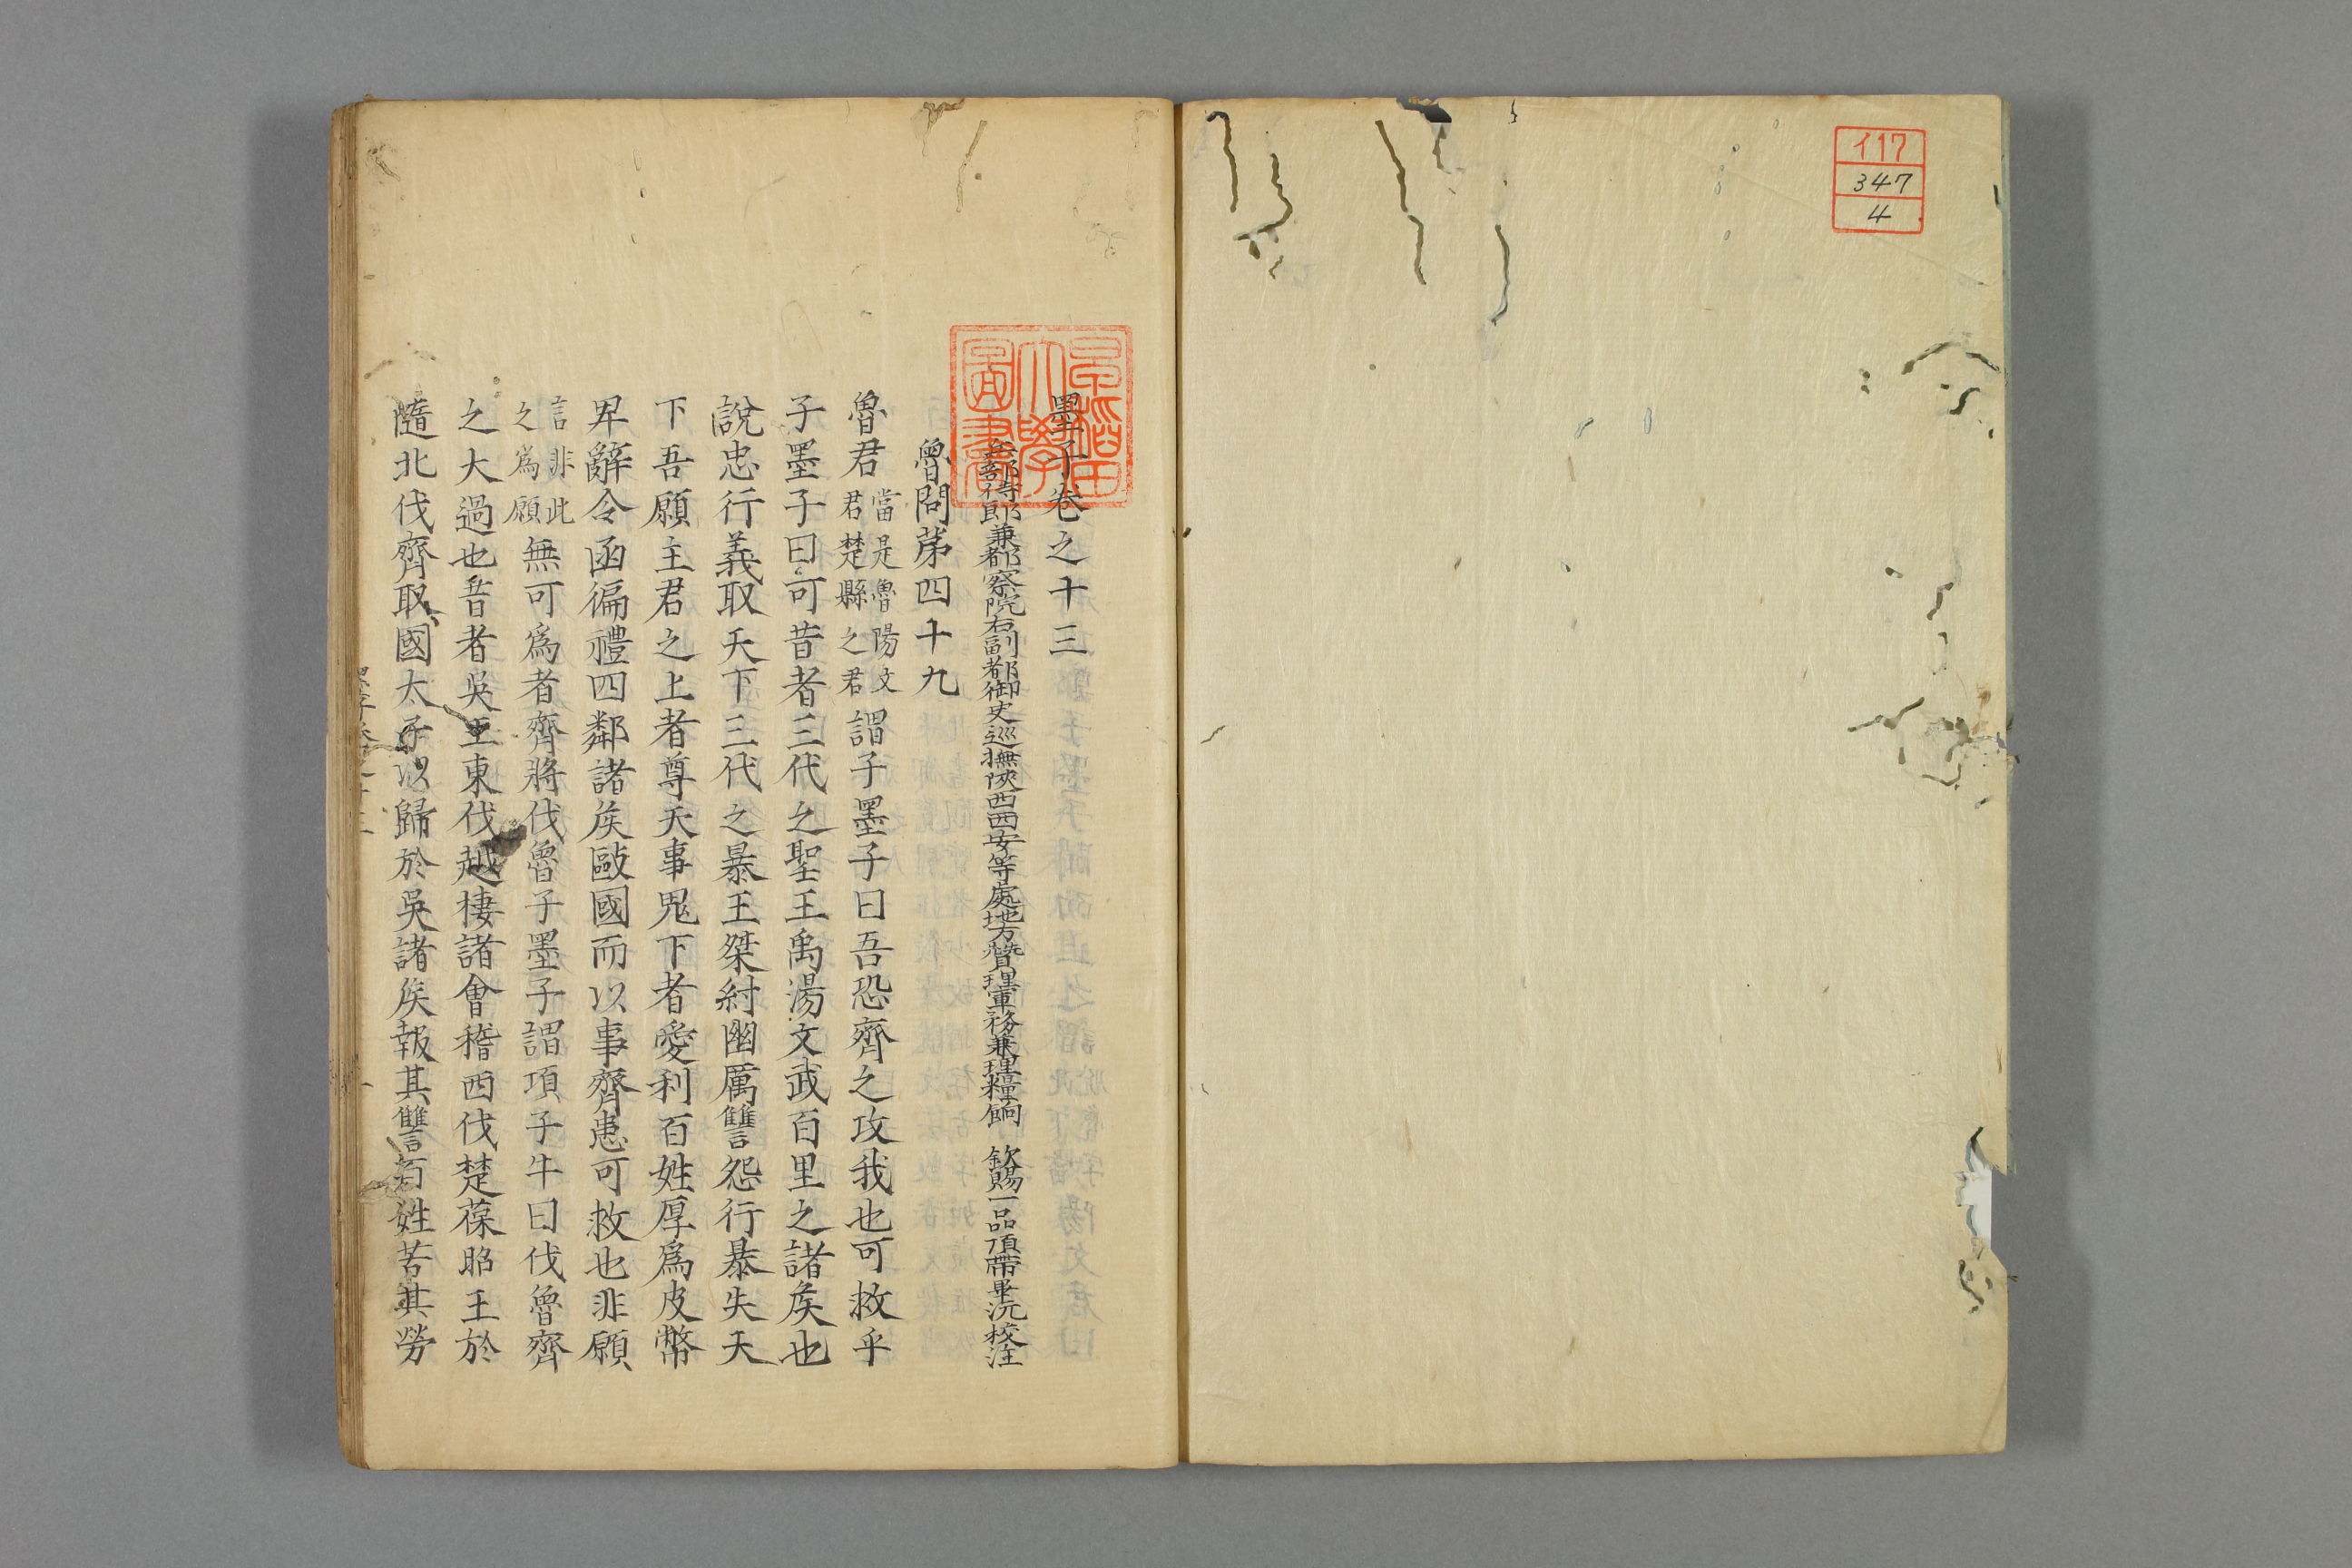 イ17
347
4
墨子卷之十三
兵部侍郎兼都察院右副都御史巡撫陝西西安等處地方贊理軍務兼理糧餉 欽賜一品頂帶畢沅校注
魯問第四十九
魯君當是魯陽文君楚縣之君謂子墨子曰吾恐齊之攻我也可救乎
子墨子曰可昔者三代之聖王禹湯文武百里之諸矦也
說忠行義取天下三代之暴王桀紂幽厲讐怨行暴失天
下吾願主君之上者尊天事鬼下者愛利百姓厚爲皮幣
卑辭令函徧禮四鄰諸矦敺國而以事齊患可救也非願
言非此之爲願無可爲者齊將伐魯子墨子謂項子牛曰伐魯齊
之大過也昔者吳王東伐越棲諸會稽西伐楚葆昭王於
隨北伐齊取國太子以歸於吳諸矦報其讐百姓苦其勞
早稻田大學圖書